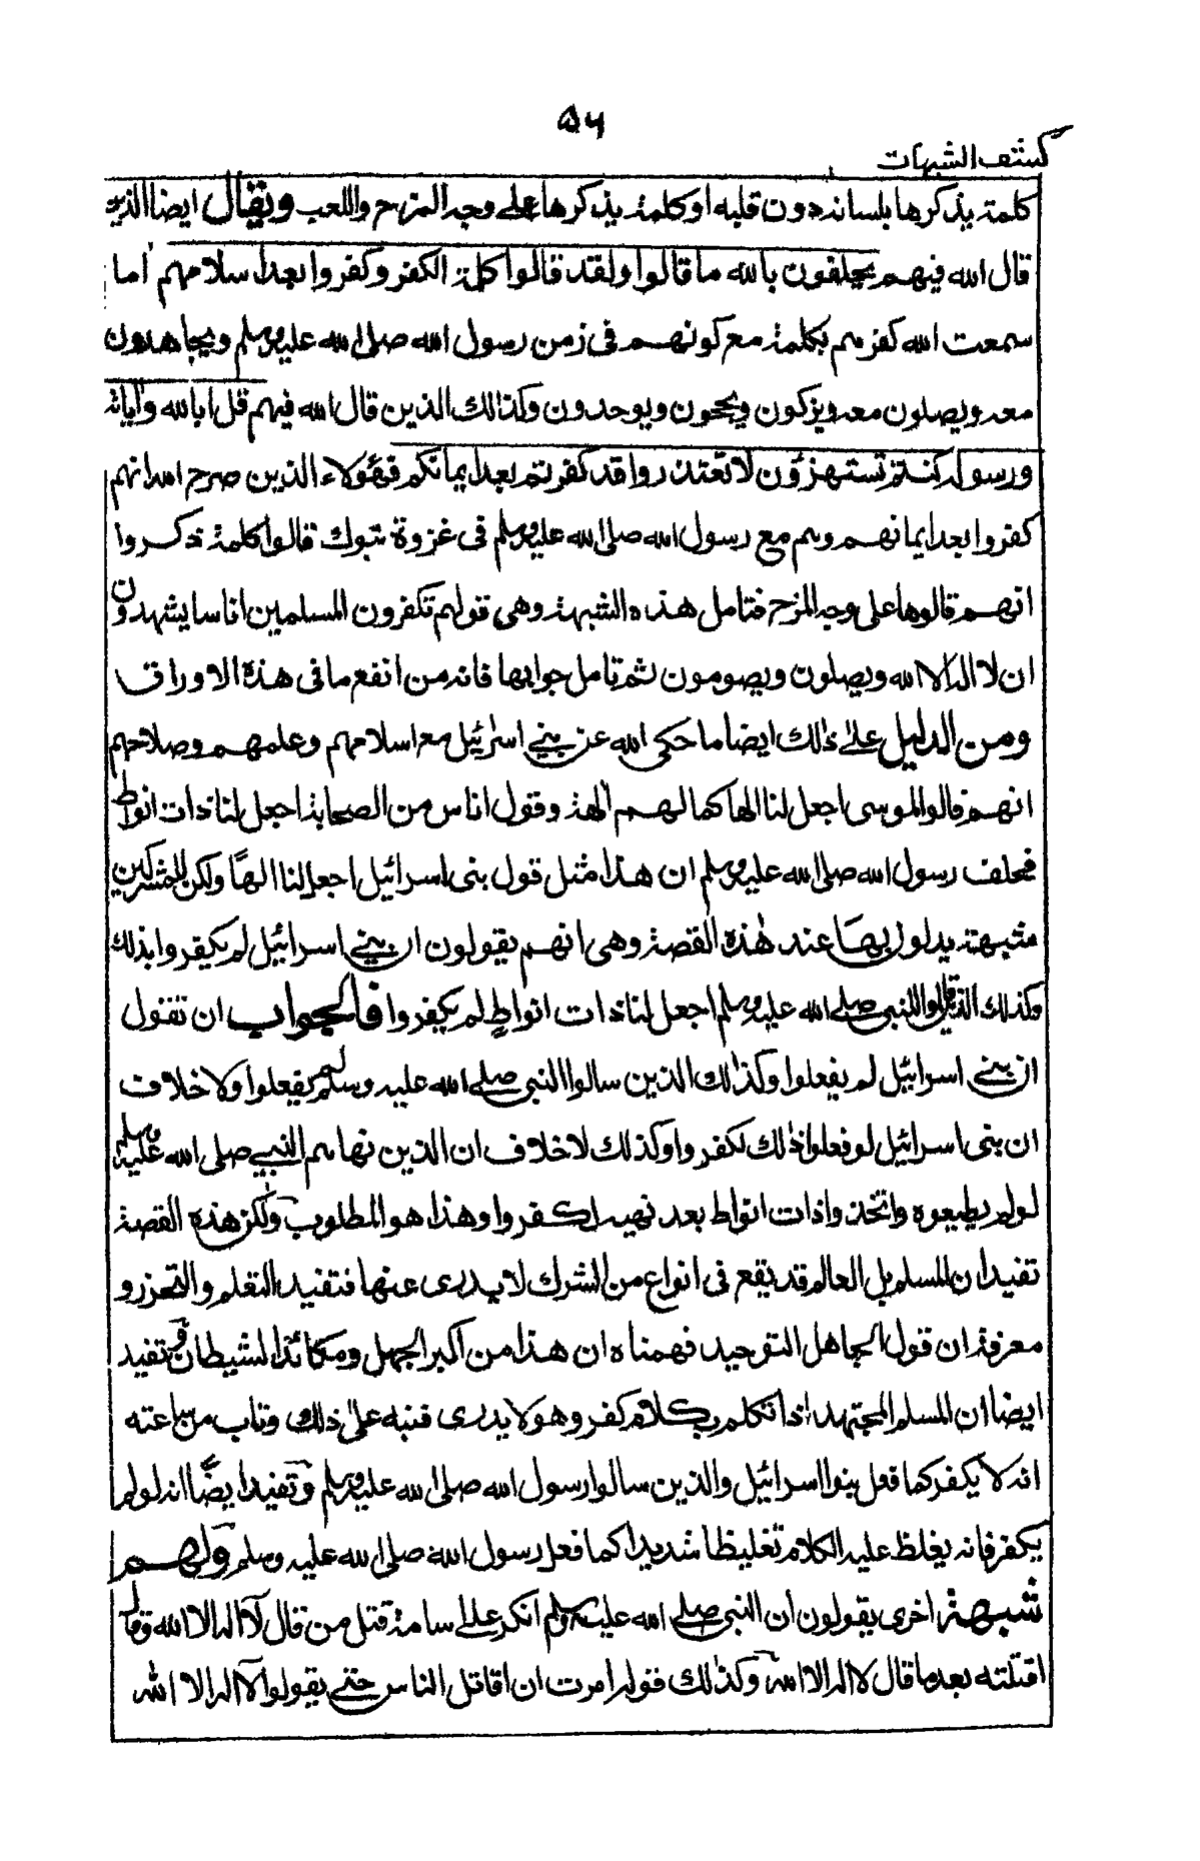 ۵۶
كشف الشبهات
كلمة يذكرها بلسانه دون قلبه او كلمة يذكرها على وجه المزح واللعب ويقال ايضا الذين
قال الله فيهم يحلفون بالله ما قالوا ولقد قالوا كلمة الكفر وكفروا بعد اسلامهم اما
سمعت الله كفرهم بكلمة مع كونهم فى زمن رسول الله صلى الله عليه وسلم ويجاهدون
معه ويصلون معه ويزكون ويحجون ويوحدون وكذالك الذين قال الله فيهم قل ابالله واٰياته
ورسوله كنتم تستهزؤن لا تعتذروا قد كفرتم بعد ايمانكم فهٰؤلاء الذين صرح الله انهم
كفروا بعد ايمانهم وهم مع رسول الله صلى الله عليه وسلم فى غزوة تبوك قالوا كلمة ذكروا
انهم قالوها على وجه المزح فتامل هذه الشبهة وهى قولهم تكفرون المسلمين اناسا يشهدون
ان لا اله الا الله ويصلون ويصومون ثم تامل جوابها فانه من انفع ما فى هذه الاوراق
ومن الدليل على ذٰلك ايضا ما حكى الله عن بنى اسرائيل مع اسلامهم وعلمهم وصلاحهم
انهم قالوا لموسى اجعل لنا الها كما لهم اٰلهة وقول اناس من الصحابة اجعل لنا ذات انواط
فحلف رسول الله صلى الله عليه وسلم ان هذا مثل قول بنى اسرائيل اجعل لنا الهًا ولكن للمشركين
شبهة يدلون بها عند هٰذه القصة وهى انهم يقولون ان بنى اسرائيل لم يكفروا بذلك
وكذلك الذين قالوا للنبى صلى الله عليه وسلم اجعل لنا ذات انواطٍ لم يكفروا فالجواب ان تقول
ان بنى اسرائيل لم يفعلوا وكذٰلك الذين سالوا النبى صلى الله عليه وسلم لم يفعلوا ولا خلاف
ان بنى اسرائيل لو فعلوا ذٰلك لكفروا وكذلك لا خلاف ان الذين نهاهم النبى صلى الله عليه وسلم
لو لم يطيعوه واتخذوا ذات انواط بعد نهيه لكفروا وهذا هو المطلوب ولكن هذه القصة
تفيد ان المسلم بل العالم قد يقع فى انواع من الشرك لا يدرى عنها فتفيد التعلم والتحرز و
معرفة ان قول الجاهل التوحيد فهمناه ان هذا من اكبر الجهل ومكائد الشيطان وتفيد
ايضا ان المسلم المجتهد اذا تكلم بكلام كفر وهو لا يدرى فنبه على ذلك وتاب من ساعته
انه لا يكفر كما فعل بنوا اسرائيل والذين سالوا رسول الله صلى الله عليه وسلم وتفيد ايضًا انه لو لم
يكفر فانه يغلظ عليه الكلام تغليظا شديدا كما فعل رسول الله صلى الله عليه وسلم ولهم
شبهة اخرى يقولون ان النبى صلى الله عليه وسلم انكر على اسامة قتل من قال لا اله الا الله وقال
اقتلته بعد ما قال لا اله الا الله وكذلك قوله امرت ان اقاتل الناس حتى يقولوا لا اله الا الله